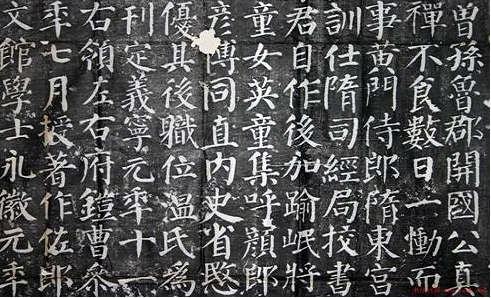 曾孫魯郡開國公真
禪不食數日一慟而
事黃門侍郎隋東宮
訓仕隋司經局挍書
君自作後加踰岷將
童女英童集呼顏郎
彦博同直内史省愍
優其後職位温氏爲
刊定義寧元年十一
右領左右府鎧曹參
年七月授著作佐郎
文館學士永徽元年